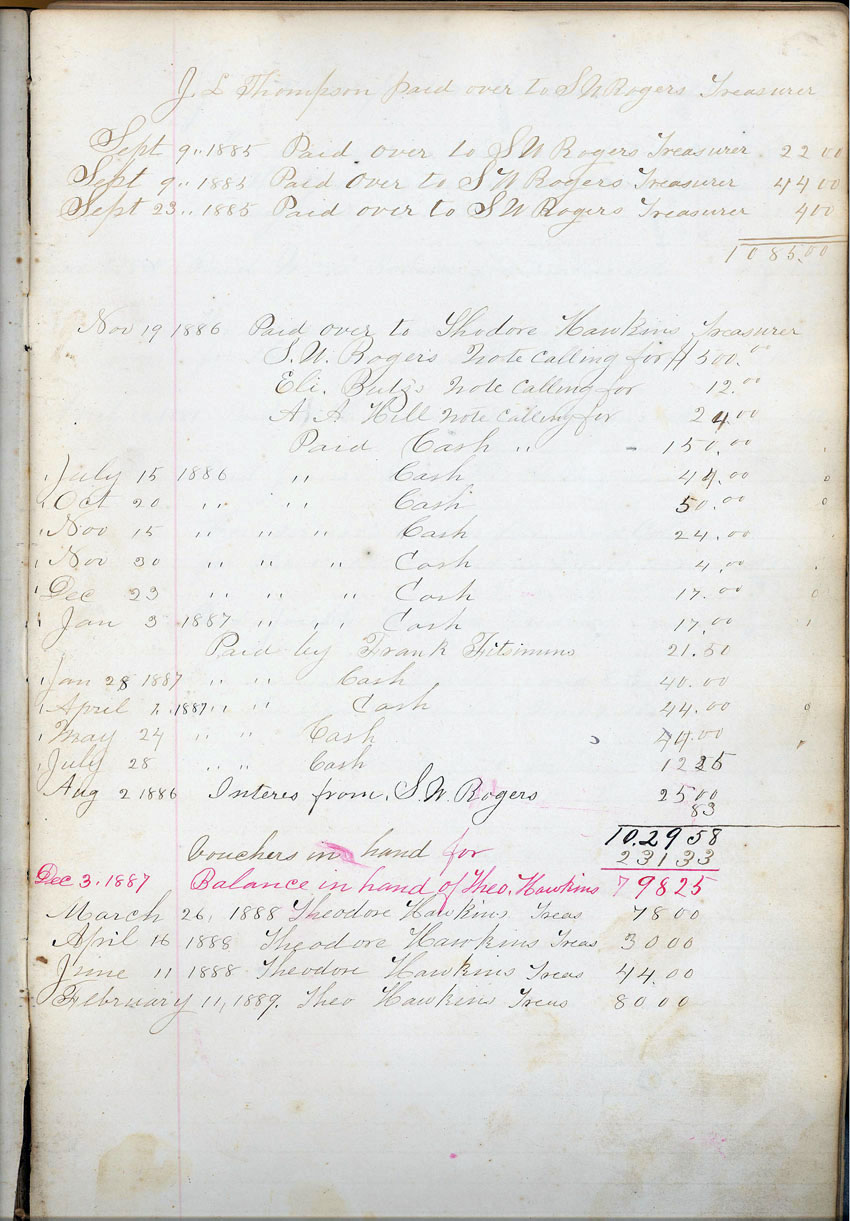 J. L Thompson Paid over to S W Rogers Treasurer
Sept 9,, 1885 Paid over to S W Rogers Treasurer 22 00
Sept 9,, 1885 Paid over to S W Rogers Treasurer 44 00
Sept 23,, 1885 Paid over to S W Rogers Treasurer 4 00
1085.00
Nov 19 1886 Paid over to Thodore Hawkins Treasurer
S. W. Rogers Note calling for $500.00
Eli. Note calling for 12.00
A. A Hill note calling for 24.00
Paid Cash ,, - 150.00
July 15 1886 ,, Cash 44.00
Oct 20 ,, ,, Cash 50.00
Nov 15 ,, ,, ,, Cash 24.00
Nov 30 ,, ,, ,, Cash 4.00
Dec 23 ,, ,, ,, Cash 17.00
Jan 3 1887 ,, ,, ,, Cash 17.00
Paid by Frank Fitsimins 21.50
Jan 28 1887 ,, ,, Cash 40.00
April 1. 1887 ,, ,, Cash 44.00
May 24 ,, ,, Cash 44.00
July 28 ,, ,, Cash 12 25
Aug 2 1886 Interes from. S. W. Rogers 25 00
83
10.29 58
Vouchers in hand for 231 33
Dec 3. 1887 Balance in hand of Theo. Hawkins 798 25
March 26, 1888 Theodore Hawkins Treas 78 00
April 16 1888 Theodore Hawkins Treas 30 00
June 11 1888 Theodore Hawkins Treas 44.00
February 11, 1889. Theo Hawkins Treas 80 00